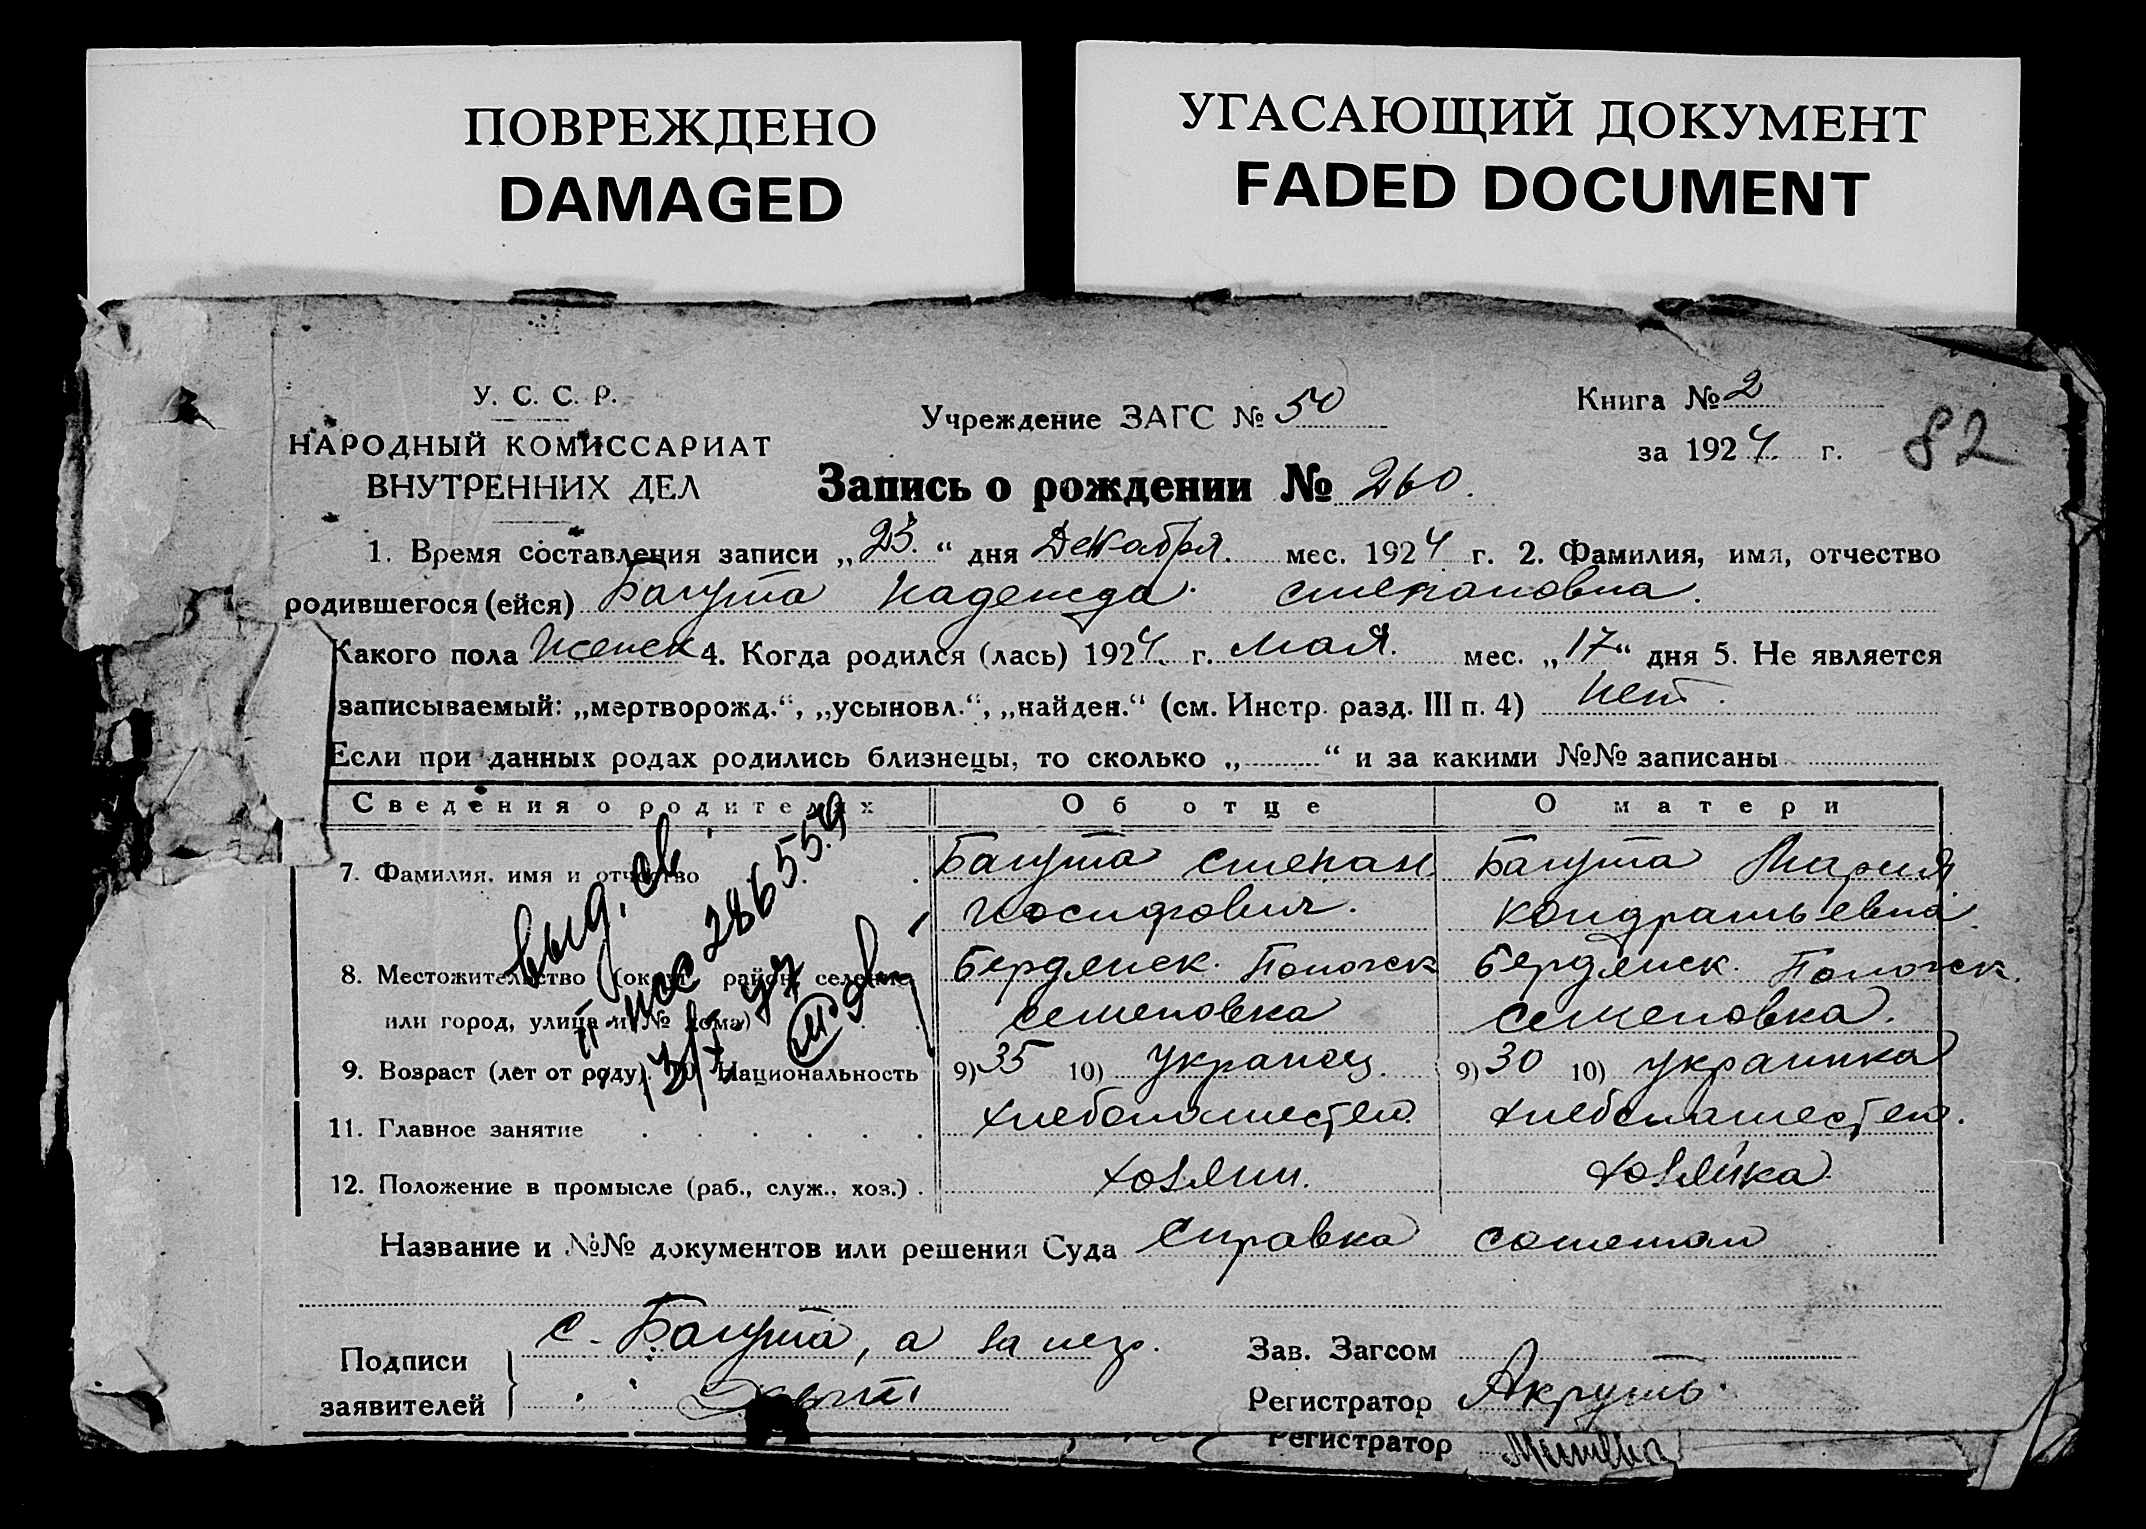 ПОВРЕЖДЕНО
DAMAGED
УГАСАЮЩИЙ ДОКУМЕНТ
FADED DOCUMENT
У. С. С. Р.
НАРОДНЫЙ КОМИССАРИАТ
ВНУТРЕННИХ ДЕЛ
Учреждение ЗАГС № 50
Книга № 2
за 1924 г.
82
Запись о рождении № 260.
1. Время составления записи „23.“ дня Декабря. мес. 1924 г. 2. Фамилия, имя, отчество
родившегося (ейся) Багута Надежда Степановна.
Какого пола Женск 4. Когда родился (лась) 1924 г. Мая. мес. „17“ дня 5. Не является
записываемый: „мертворожд.“, „усыновл.“, „найден.“ (см. Инстр. разд. III п. 4) Нет.
Если при данных родах родились близнецы, то сколько „ “ и за какими №№ записаны
Сведения о родителях Об отце О матери
7. Фамилия, имя и отчество Багута Степан Багута Мария
Иосифович. Кондратьевна
8. Местожительство (округ, район, селение Бердянск. Пологск Бердянск. Пологск.
или город, улица и № дома) Семеновка Семеновка.
9. Возраст (лет от роду) 10) Национальность 9) 35 10) Украинец. 9) 30 10) Украинка
11. Главное занятие Хлебопашество Хлебопашество.
12. Положение в промысле (раб., служ., хоз.) Хозяин. Хозяйка
выд. св
Название и №№ документов или решения Суда Справка
Подписи
заявителей
С. Багута, а за нег.
Зав. Загсом
Регистратор
Регистратор